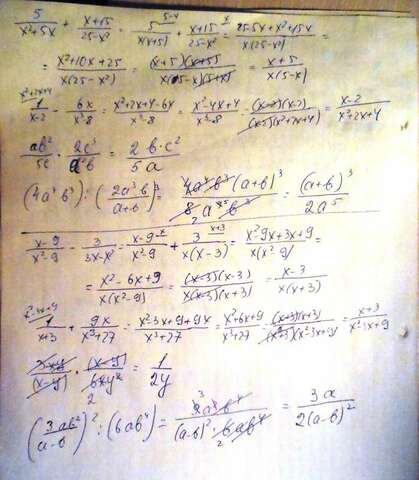 5/(x²+5x) + (x+15)/(25-x²) = 5/(x(x+5)) ^(5-x) + (x+15)/(25-x²) ^x = (25-5x+x²+15x)/(x(25-x²)) =
= (x²+10x+25)/(x(25-x²)) = ((x+5)(x+5))/(x(5-x)(5+x)) = (x+5)/(x(5-x))
1/(x-2) ^(x²+2x+4) - 6x/(x³-8) = (x²+2x+4-6x)/(x³-8) = (x²-4x+4)/(x³-8) = ((x-2)(x-2))/((x-2)(x²+2x+4)) = (x-2)/(x²+2x+4)
ab²/5c · 2c³/a²b = 2b·c²/5a
(4a³b³) : (2a³b/(a+b))³ = 4a³b³(a+b)³/8a⁵b³ = (a+b)³/2a⁵
(x-9)/(x²-9) - 3/(3x-x²) = (x-9)/(x²-9) ^x + 3/(x(x-3)) ^(x+3) = (x²-9x+3x+9)/(x(x²-9)) =
= (x²-6x+9)/(x(x²-9)) = ((x-3)(x-3))/(x(x-3)(x+3)) = (x-3)/(x(x+3))
1/(x+3) ^(x²-3x+9) + 9x/(x³+27) = (x²-3x+9+9x)/(x³+27) = (x²+6x+9)/(x³+27) = ((x+3)(x+3))/((x+3)(x²-3x+9)) = (x+3)/(x²-3x+9)
3xy/(x-y) · (x-y)/6xy² = 1/2y
(3ab²/(a-b))² : (6ab⁴) = 9a²b⁴/((a-b)²·6ab⁴) = 3a/2(a-b)²